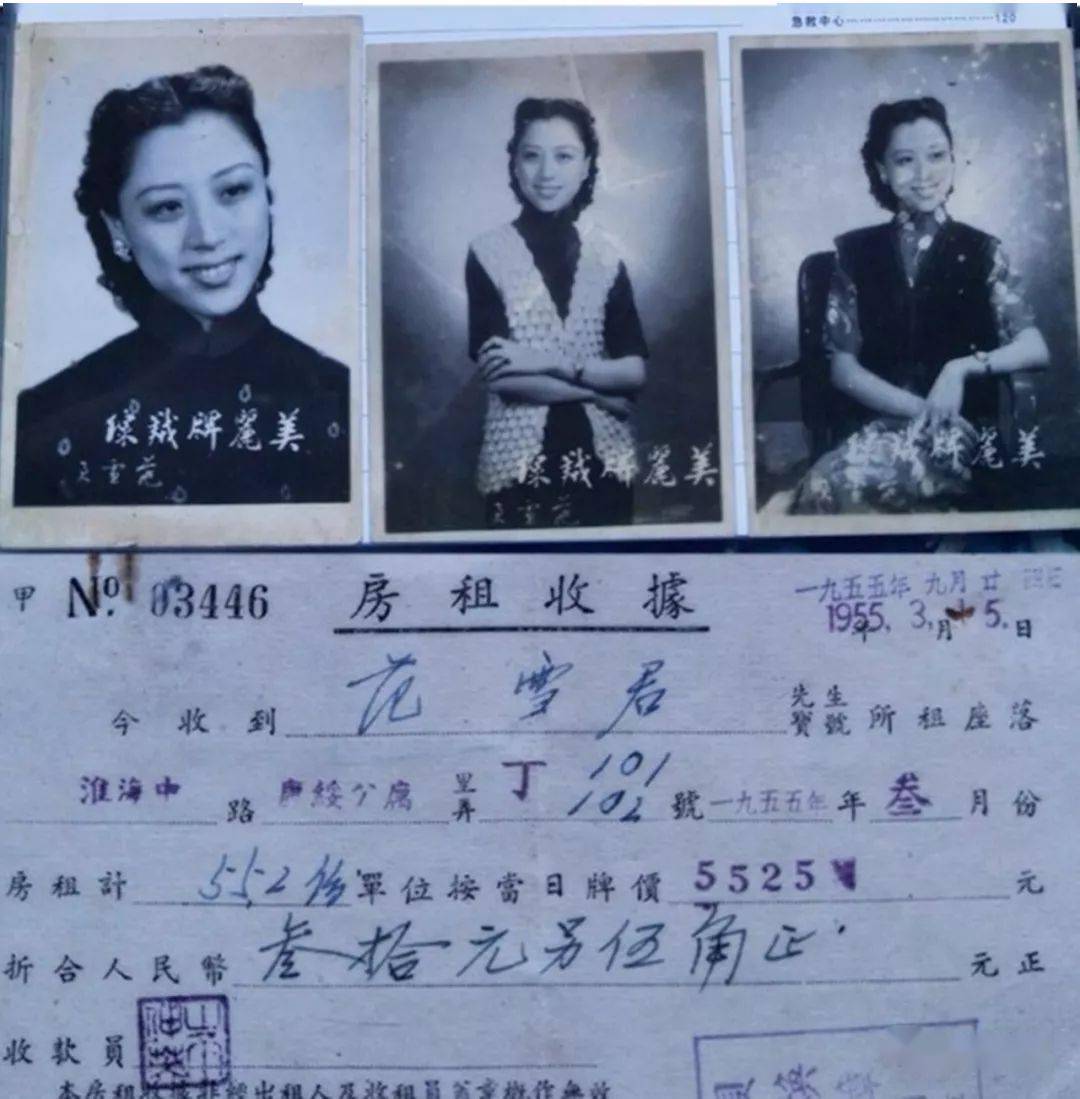 急救中心 120
美麗牌絨
美麗牌絨
美麗牌絨
甲 No. 03446 房租收據
一九五五年 九月 廿
1955年 3月 15日
今收到 范雪君 先生 寶號 所租座落
淮海中 路 公寓 里 弄 丁 101 102 號 一九五五年 年 叁 月份
房租計 55.2 單位按當日牌價 5525 元
折合人民幣 叁拾元另伍角正 元正
收款員
本房租收據非經出租人及收租員蓋章概作無效